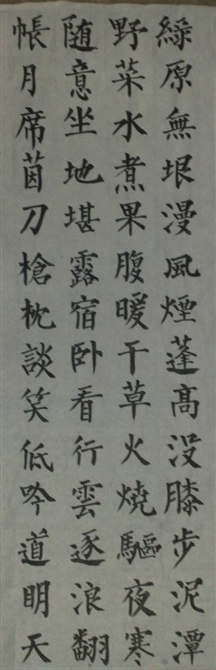 綠原無垠漫風煙蓬高没膝步泥潭
野菜水煮果腹暖干草火燒驅夜寒
随意坐地堪露宿卧看行雲逐浪翻
帳月席茵刀槍枕談笑低吟道明天